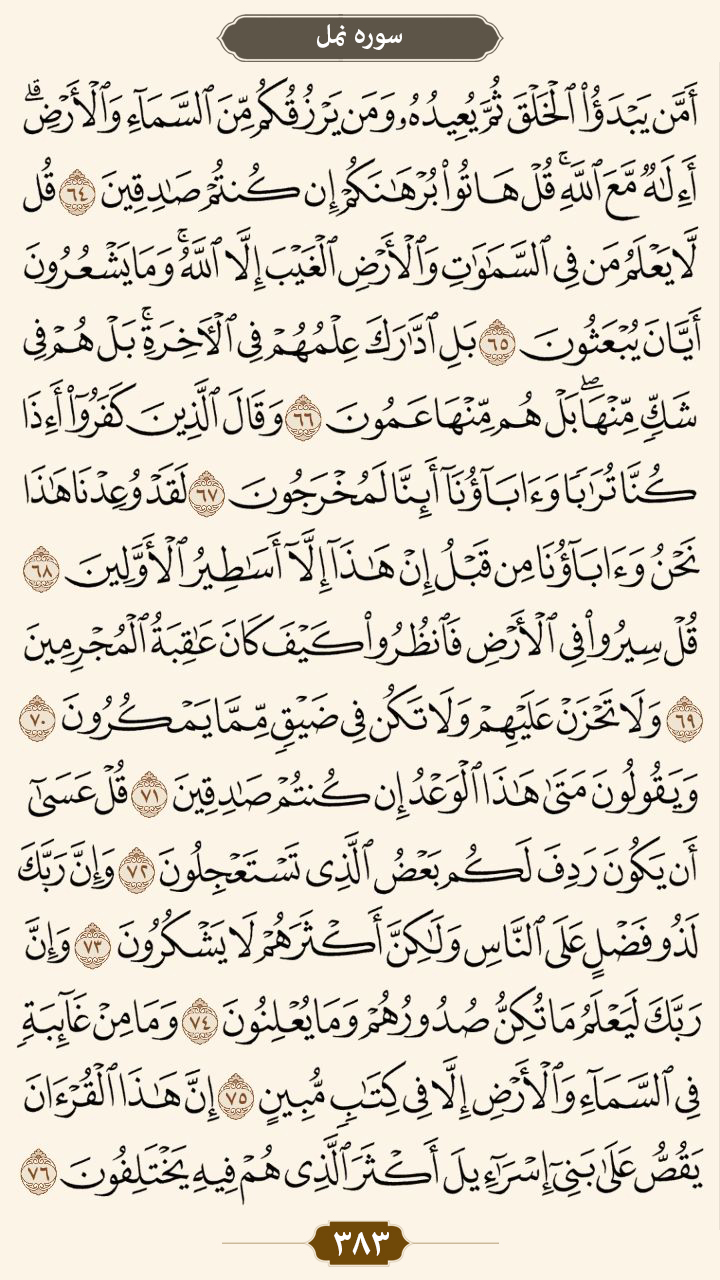 سوره نمل
أَمَّن يَبْدَؤُاْ ٱلْخَلْقَ ثُمَّ يُعِيدُهُۥ وَمَن يَرْزُقُكُم مِّنَ ٱلسَّمَآءِ وَٱلْأَرْضِۗ
أَءِلَٰهٌ مَّعَ ٱللَّهِۚ قُلْ هَاتُواْ بُرْهَٰنَكُمْ إِن كُنتُمْ صَٰدِقِينَ ٦٤ قُل
لَّا يَعْلَمُ مَن فِى ٱلسَّمَٰوَٰتِ وَٱلْأَرْضِ ٱلْغَيْبَ إِلَّا ٱللَّهُۚ وَمَا يَشْعُرُونَ
أَيَّانَ يُبْعَثُونَ ٦٥ بَلِ ٱدَّٰرَكَ عِلْمُهُمْ فِى ٱلْأَخِرَةِۚ بَلْ هُمْ فِى
شَكٍّ مِّنْهَاۖ بَلْ هُم مِّنْهَا عَمُونَ ٦٦ وَقَالَ ٱلَّذِينَ كَفَرُوٓاْ أَءِذَا
كُنَّا تُرَٰبًا وَءَابَآؤُنَآ أَئِنَّا لَمُخْرَجُونَ ٦٧ لَقَدْ وُعِدْنَا هَٰذَا
نَحْنُ وَءَابَآؤُنَا مِن قَبْلُ إِنْ هَٰذَآ إِلَّآ أَسَٰطِيرُ ٱلْأَوَّلِينَ ٦٨
قُلْ سِيرُواْ فِى ٱلْأَرْضِ فَٱنظُرُواْ كَيْفَ كَانَ عَٰقِبَةُ ٱلْمُجْرِمِينَ
٦٩ وَلَا تَحْزَنْ عَلَيْهِمْ وَلَا تَكُن فِى ضَيْقٍ مِّمَّا يَمْكُرُونَ ٧٠
وَيَقُولُونَ مَتَىٰ هَٰذَا ٱلْوَعْدُ إِن كُنتُمْ صَٰدِقِينَ ٧١ قُلْ عَسَىٰٓ
أَن يَكُونَ رَدِفَ لَكُم بَعْضُ ٱلَّذِى تَسْتَعْجِلُونَ ٧٢ وَإِنَّ رَبَّكَ
لَذُو فَضْلٍ عَلَى ٱلنَّاسِ وَلَٰكِنَّ أَكْثَرَهُمْ لَا يَشْكُرُونَ ٧٣ وَإِنَّ
رَبَّكَ لَيَعْلَمُ مَا تُكِنُّ صُدُورُهُمْ وَمَا يُعْلِنُونَ ٧٤ وَمَا مِنْ غَآئِبَةٍ
فِى ٱلسَّمَآءِ وَٱلْأَرْضِ إِلَّا فِى كِتَٰبٍ مُّبِينٍ ٧٥ إِنَّ هَٰذَا ٱلْقُرْءَانَ
يَقُصُّ عَلَىٰ بَنِىٓ إِسْرَٰٓءِيلَ أَكْثَرَ ٱلَّذِى هُمْ فِيهِ يَخْتَلِفُونَ ٧٦
٣٨٣